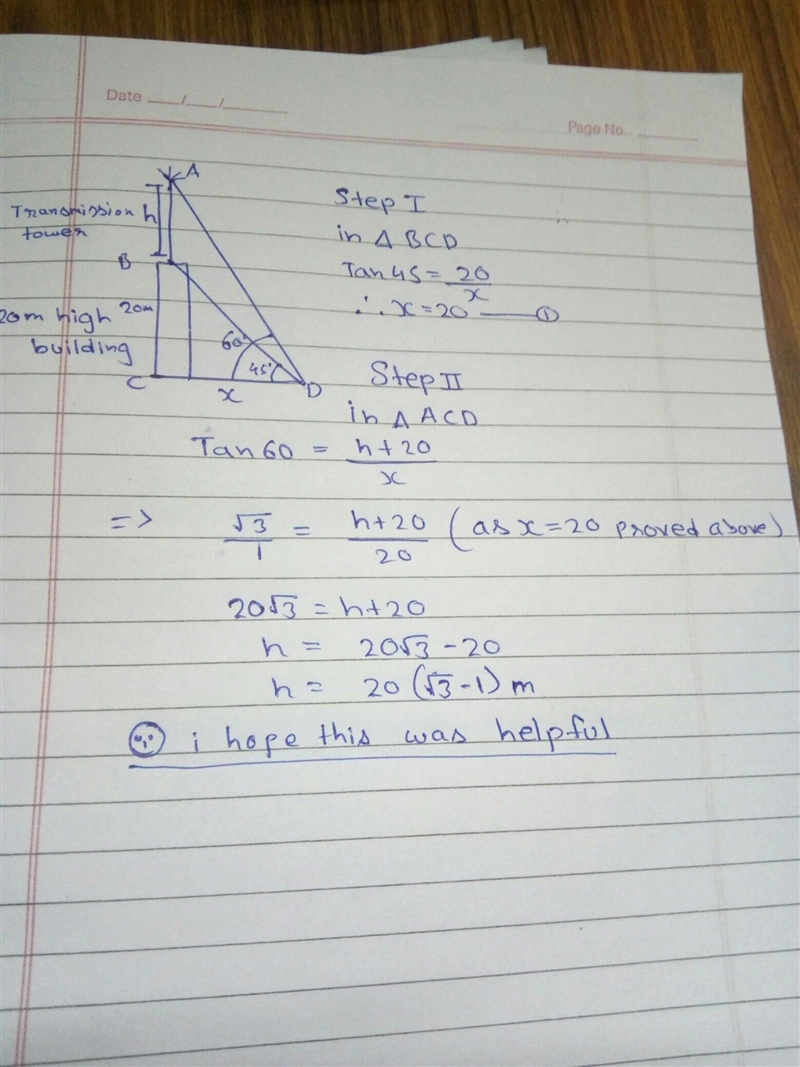 Date ___/___/______
Page No.. ______
A
Transmission h
tower
B
20m high 20m
building
C
x
D
60°
45°
Step I
in △ BCD
Tan 45 = 20/x
∴ x = 20 —— ①
Step II
in △ ACD
Tan 60 = h+20/x
=> √3/1 = h+20/20 (as x = 20 proved above)
20√3 = h+20
h = 20√3 - 20
h = 20 (√3-1) m
i hope this was helpful